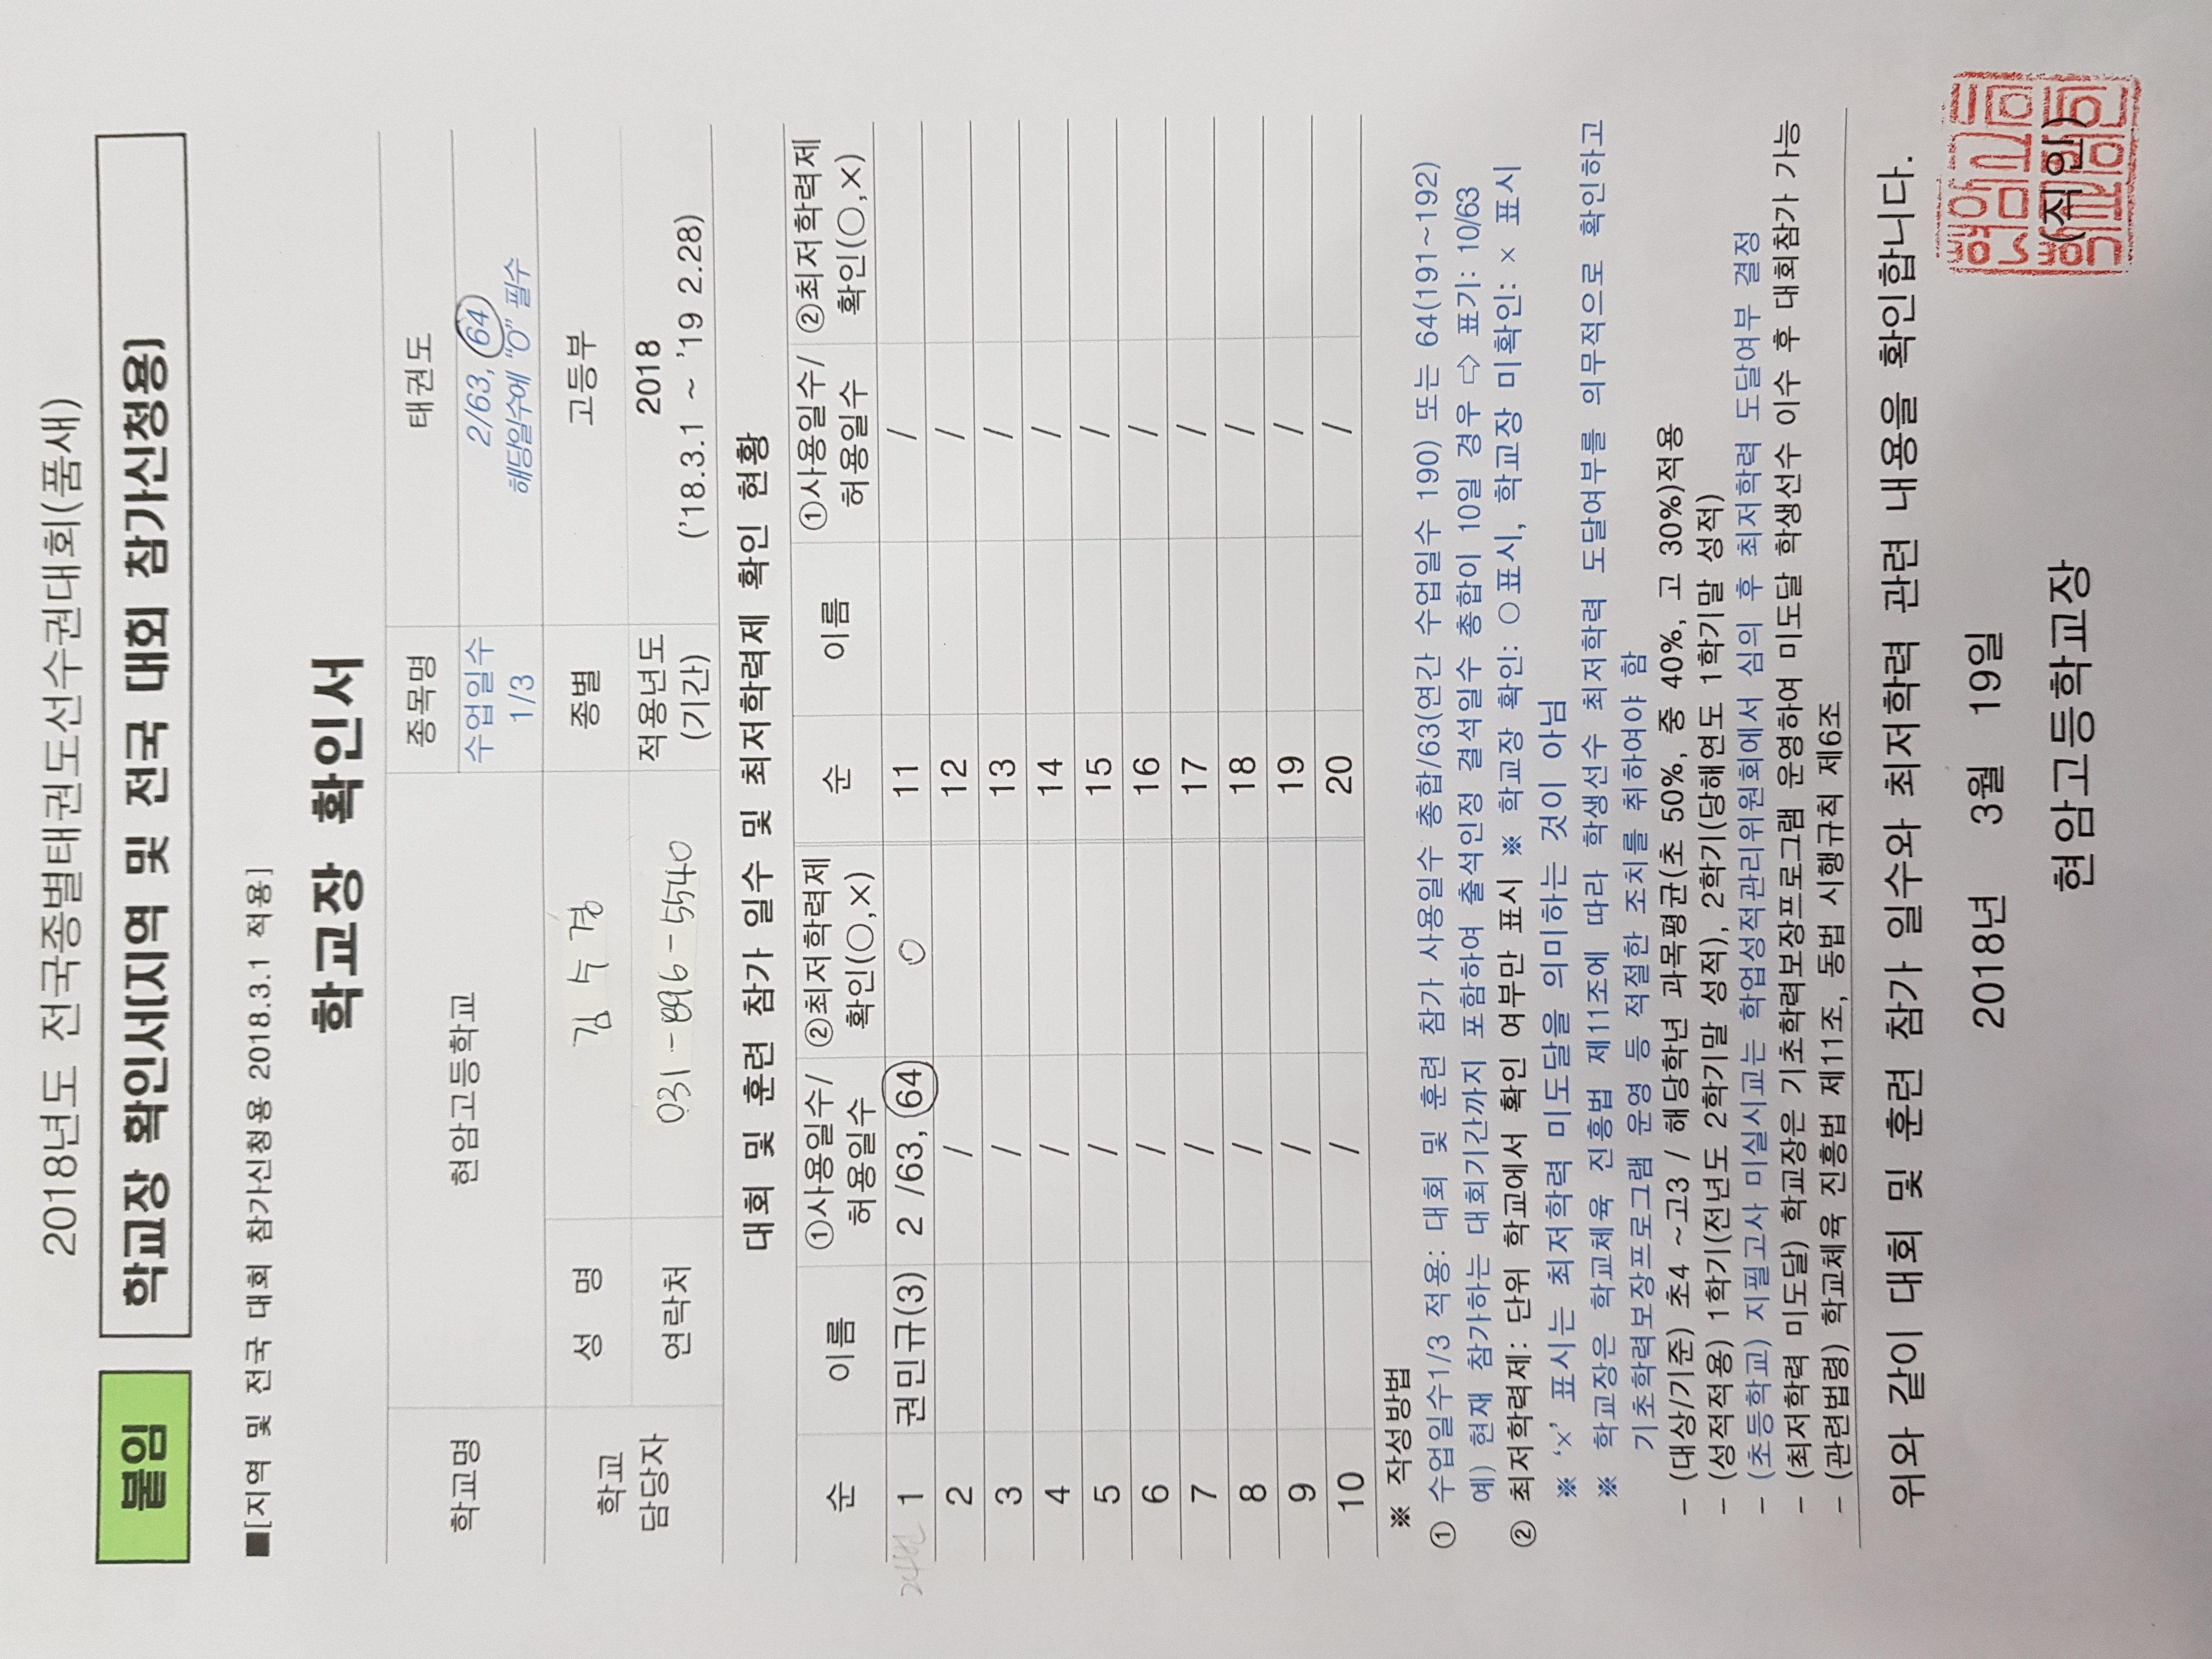 2018년도 전국종별태권도선수권대회(품새)
붙임 학교장 확인서[지역 및 전국 대회 참가신청용]
■[지역 및 전국 대회 참가신청용 2018.3.1 적용]
학교장 확인서
학교명 현암고등학교 종목명 태권도
수업일수 1/3 2/63, 64
해당일수에 "O" 필수
학교 담당자 성 명 김 수 경 종별 고등부
연락처 031-896-5540 적용년도 (기간) 2018
('18.3.1 ~ '19 2.28)
대회 및 훈련 참가 일수 및 최저학력제 확인 현황
순 이름 ①사용일수/허용일수 ②최저학력제 확인(○,×) 순 이름 ①사용일수/허용일수 ②최저학력제 확인(○,×)
1 권민규(3) 2 /63, 64 ○ 11 /
2 / 12 /
3 / 13 /
4 / 14 /
5 / 15 /
6 / 16 /
7 / 17 /
8 / 18 /
9 / 19 /
10 / 20 /
※ 작성방법
① 수업일수1/3 적용: 대회 및 훈련 참가 사용일수 총합/63(연간 수업일수 190) 또는 64(191~192)
예) 현재 참가하는 대회기간까지 포함하여 출석인정 결석일수 총합이 10일 경우 ⇨ 표기: 10/63
② 최저학력제: 단위 학교에서 확인 여부만 표시 ※ 학교장 확인: ○표시, 학교장 미확인: × 표시
※ '×' 표시는 최저학력 미도달을 의미하는 것이 아님
※ 학교장은 학교체육 진흥법 제11조에 따라 학생선수 최저학력 도달여부를 의무적으로 확인하고
기초학력보장프로그램 운영 등 적절한 조치를 취하여야 함
- (대상/기준) 초4 ~고3 / 해당학년 과목평균(초 50%, 중 40%, 고 30%)적용
- (성적적용) 1학기(전년도 2학기말 성적), 2학기(당해연도 1학기말 성적)
- (초등학교) 지필고사 미실시교는 학업성적관리위원회에서 심의 후 최저학력 도달여부 결정
- (최저학력 미도달) 학교장은 기초학력보장프로그램 운영하여 미도달 학생선수 이수 후 대회참가 가능
- (관련법령) 학교체육 진흥법 제11조, 동법 시행규칙 제6조
위와 같이 대회 및 훈련 참가 일수와 최저학력 관련 내용을 확인합니다.
2018년 3월 19일
현암고등학교장 (직인)